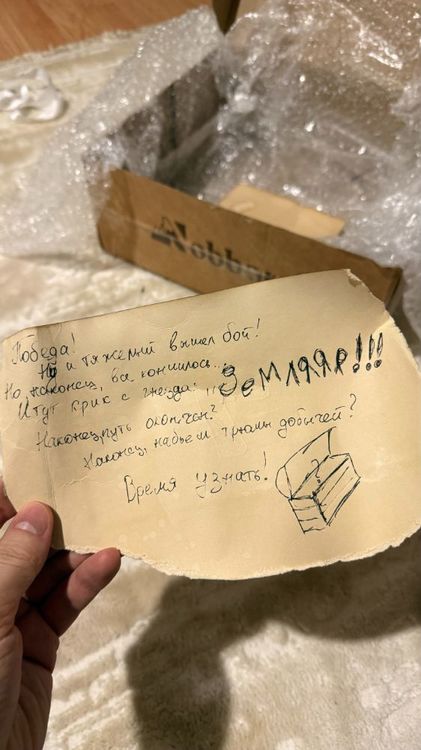 Nobby
Победа!
Ну и тяжёлый вышел бой!
Но, наконец, ва кончилось...
И тут крик с гнезда: ,,Земляяя!!!
Наконец, путь окончен?
Наконец, набьем трюмы добычей?
Время узнать!
?